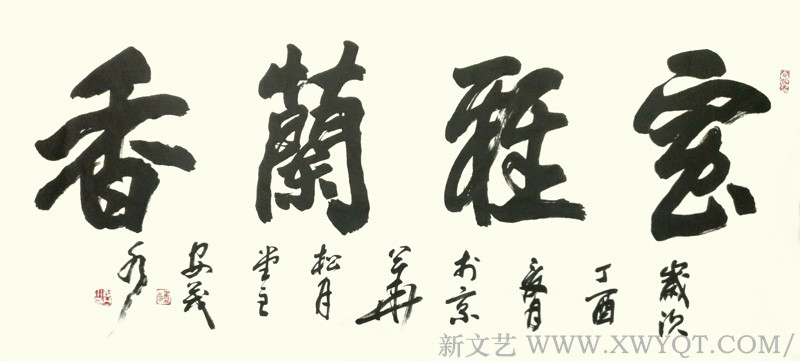 室雅蘭香
歲次丁酉夏月於京華松月堂主安茂
新文艺 WWW.XWYQT.COM/